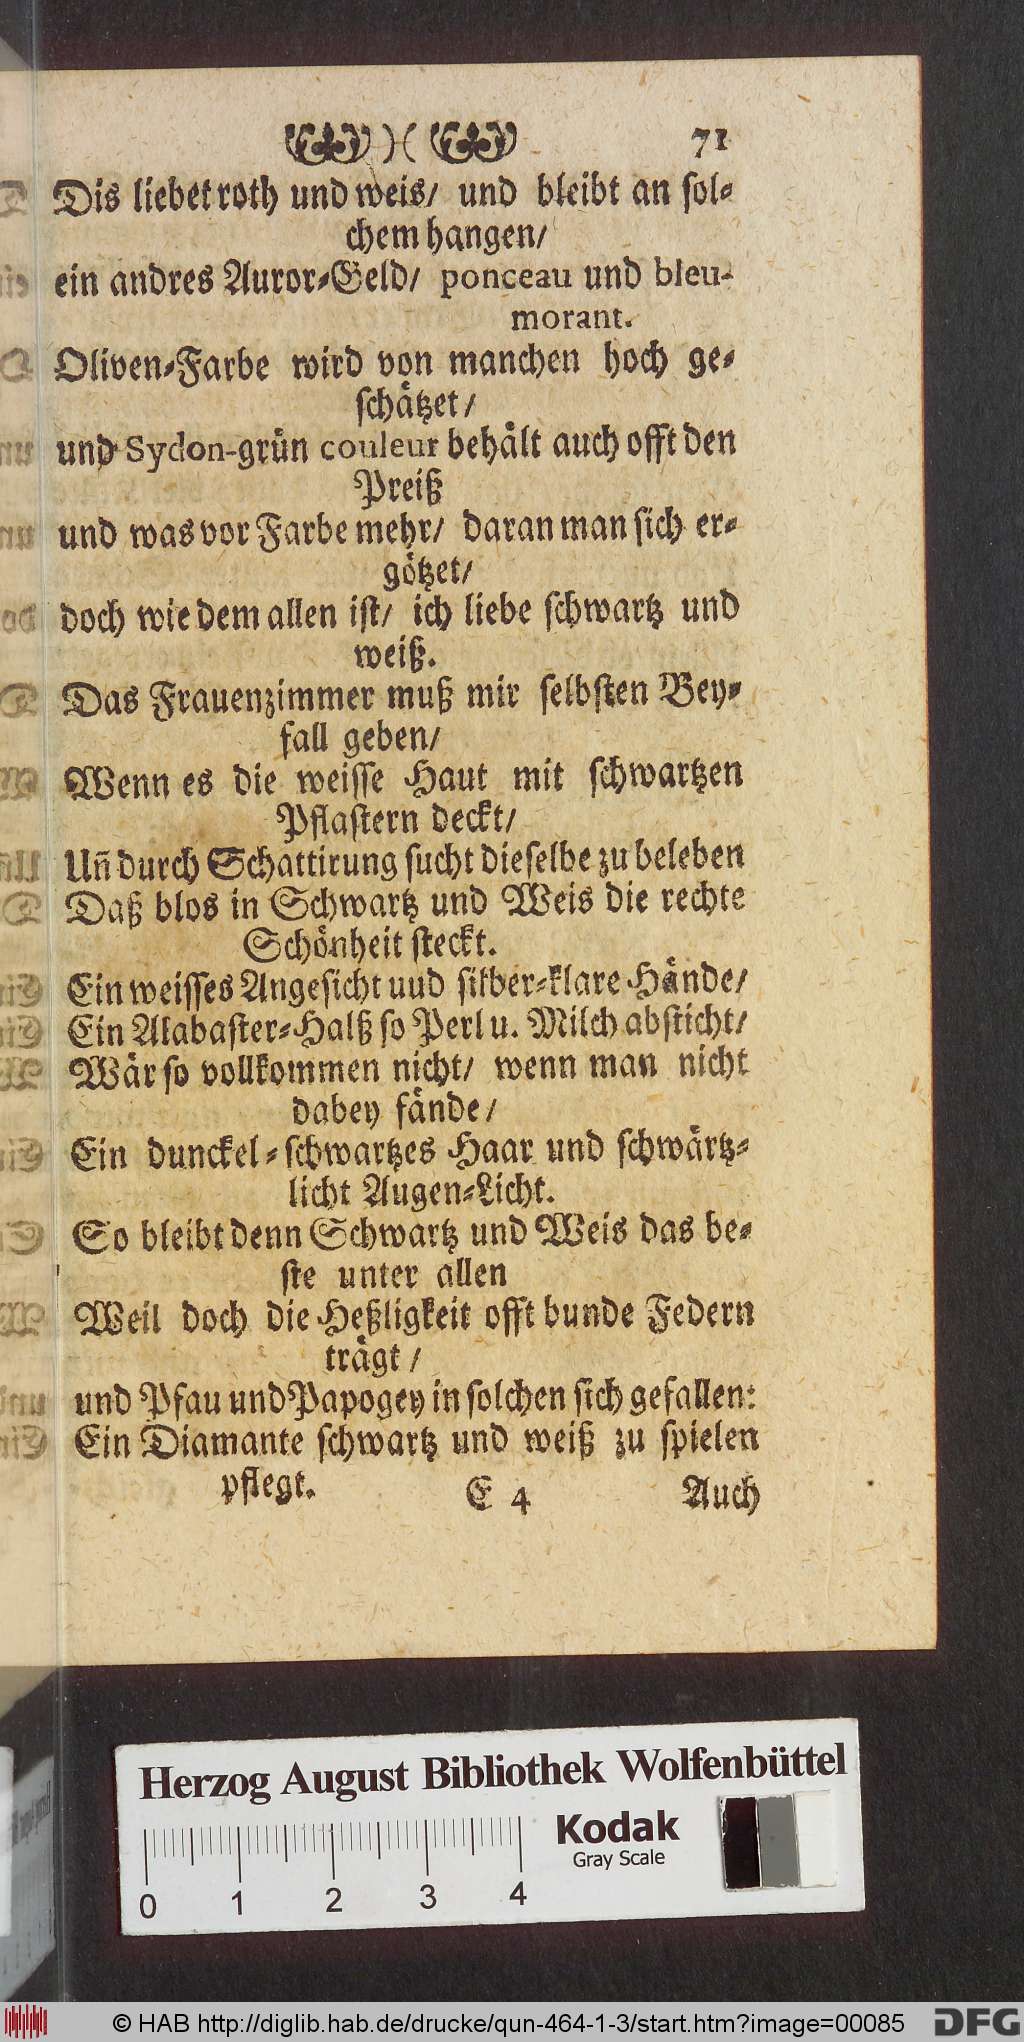 )( 71
Dis liebet roth und weis/ und bleibt an sol-
chem hangen/
ein andres Auror-Geld/ ponceau und bleu-
morant.
Oliven-Farbe wird von manchen hoch ge-
schätzet/
und Sydon-grün couleur behält auch offt den
Preiß
und was vor Farbe mehr/ daran man sich er-
götzet/
doch wie dem allen ist/ ich liebe schwartz und
weiß.
Das Frauenzimmer muß mir selbsten Bey-
fall geben/
Wenn es die weisse Haut mit schwartzen
Pflastern deckt/
Uñ durch Schattirung sucht dieselbe zu beleben
Daß blos in Schwartz und Weis die rechte
Schönheit steckt.
Ein weisses Angesicht uud silber-klare Hände/
Ein Alabaster-Halß so Perl u. Milch absticht/
Wär so vollkommen nicht/ wenn man nicht
dabey fände/
Ein dunckel-schwartzes Haar und schwärtz-
licht Augen-Licht.
So bleibt denn Schwartz und Weis das be-
ste unter allen
Weil doch die Heßligkeit offt bunde Federn
trägt/
und Pfau und Papogey in solchen sich gefallen:
Ein Diamante schwartz und weiß zu spielen
pflegt. E 4 Auch
Herzog August Bibliothek Wolfenbüttel
Kodak
Gray Scale
0 1 2 3 4
© HAB http://diglib.hab.de/drucke/qun-464-1-3/start.htm?image=00085 DFG